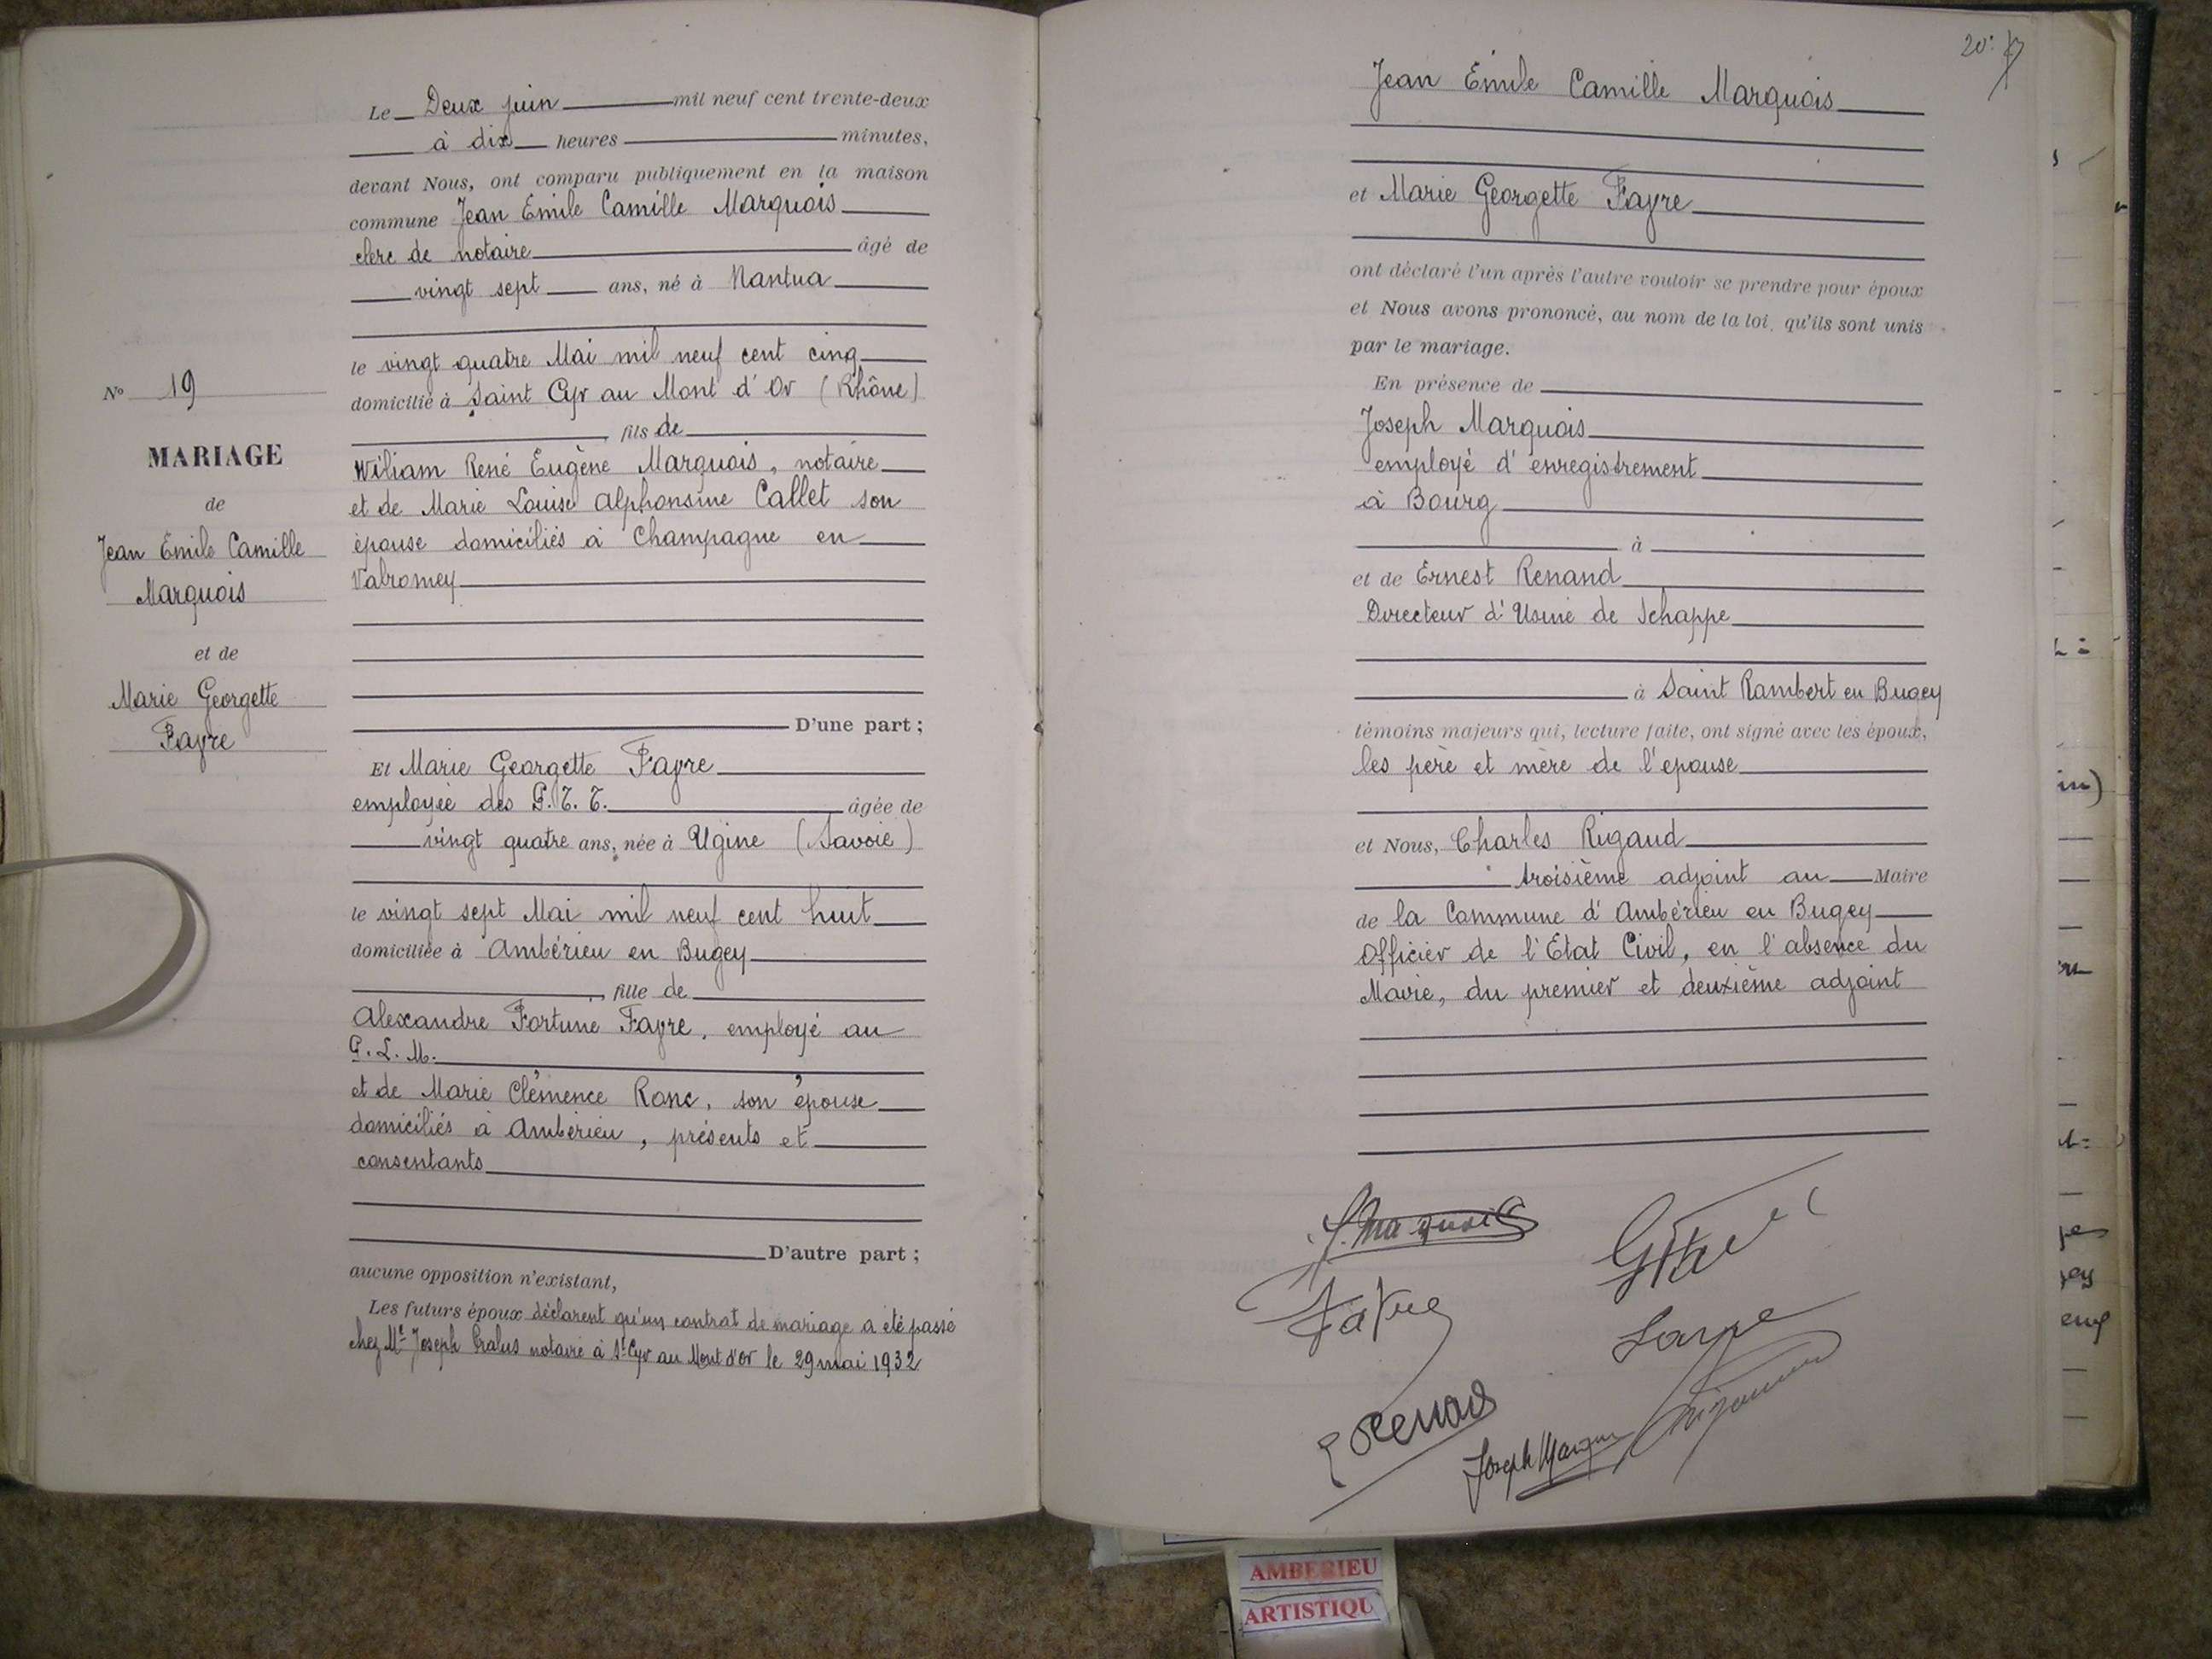 Le Deux juin mil neuf cent trente-deux
à dix heures minutes,
devant Nous, ont comparu publiquement en la maison
commune Jean Emile Camille Marquois
clerc de notaire âgé de
vingt sept ans, né à Nantua
le vingt quatre Mai mil neuf cent cinq
domicilié à Saint Cyr au Mont d'Or (Rhône)
fils de
William René Eugène Marquois, notaire
et de Marie Louise Alphonsine Callet son
épouse domiciliés à Champagne en
Valromey
D'une part;
N° 19
MARIAGE
de
Jean Emile Camille
Marquois
et de
Marie Georgette
Favre
Et Marie Georgette Favre
employée des P.T.T. âgée de
vingt quatre ans, née à Ugine (Savoie)
le vingt sept Mai mil neuf cent huit
domiciliée à Ambérieu en Bugey
, fille de
Alexandre Fortune Favre, employé au
P.L.M.
et de Marie Clémence Ronc, son épouse
domiciliés à Ambérieu, présents et
consentants
D'autre part;
aucune opposition n'existant,
Les futurs époux déclarent qu'un contrat de mariage a été passé
chez Me Joseph notaire à St Cyr au Mont d'Or le 29 mai 1932
20.
Jean Emile Camille Marquois
et Marie Georgette Favre
ont déclaré l'un après l'autre vouloir se prendre pour époux
et Nous avons prononcé, au nom de la loi, qu'ils sont unis
par le mariage.
En présence de
Joseph Marquois
employé d'enregistrement
à Bourg
à
et de Ernest Renand
Directeur d'Usine de Schappe
à Saint Rambert en Bugey
témoins majeurs qui, lecture faite, ont signé avec les époux,
les père et mère de l'épouse
et Nous, Charles Rigaud
troisième adjoint au Maire
de la Commune d'Ambérieu en Bugey
Officier de l'Etat Civil, en l'absence du
Maire, du premier et deuxième adjoint
J. Marquois
Favre
E Renand
Joseph Marquois
AMBERIEU
ARTISTIQU